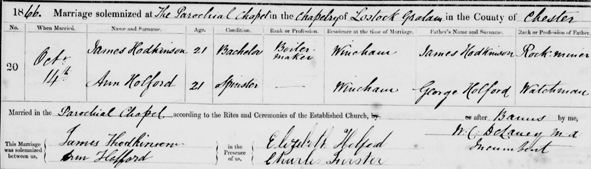 1866. Marriage solemnized at The Parochial Chapel in the Chapelry of Lostock Gralam in the County of Chester
No. When Married. Name and Surname. Age. Condition. Rank or Profession. Residence at the time of Marriage. Father's Name and Surname. Rank or Profession of Father.
20 Octr 14th James Hodkinson 21 Bachelor Boiler maker Wincham James Hodkinson Rock-miner
Ann Holford 21 Spinster — Wincham George Holford Watchman
Married in the Parochial Chapel according to the Rites and Ceremonies of the Established Church, by or after Banns by me,
This Marriage was solemnized between us, James Hodkinson in the Presence of us, Elizabeth Holford W. C. Delaney M A
Ann Holford Charles Incumbent